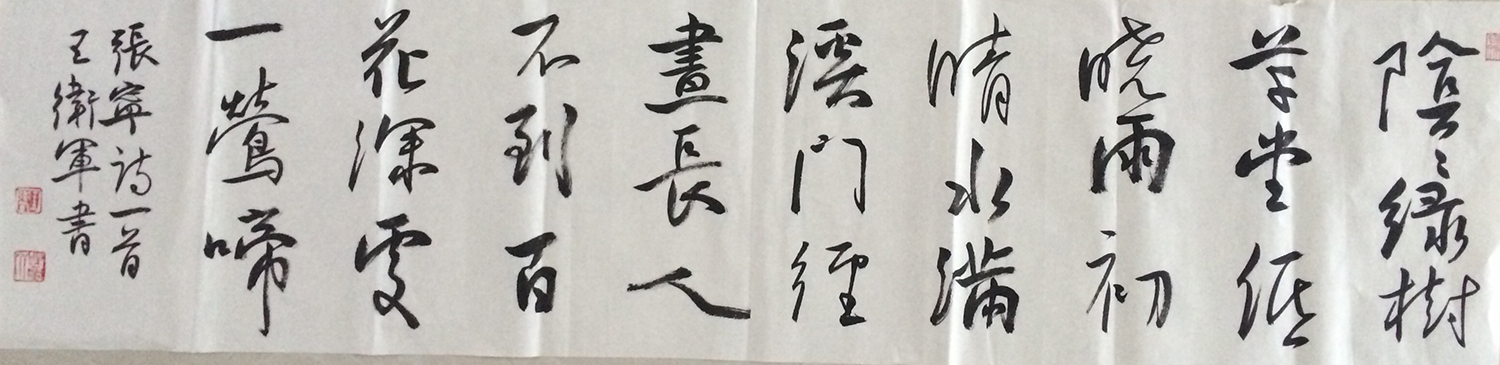 陰〻綠樹
草堂低
曉雨初
晴水滿
溪門徑
晝長人
不到百
花深處
一鶯啼
張寧詩一首
王衛軍書